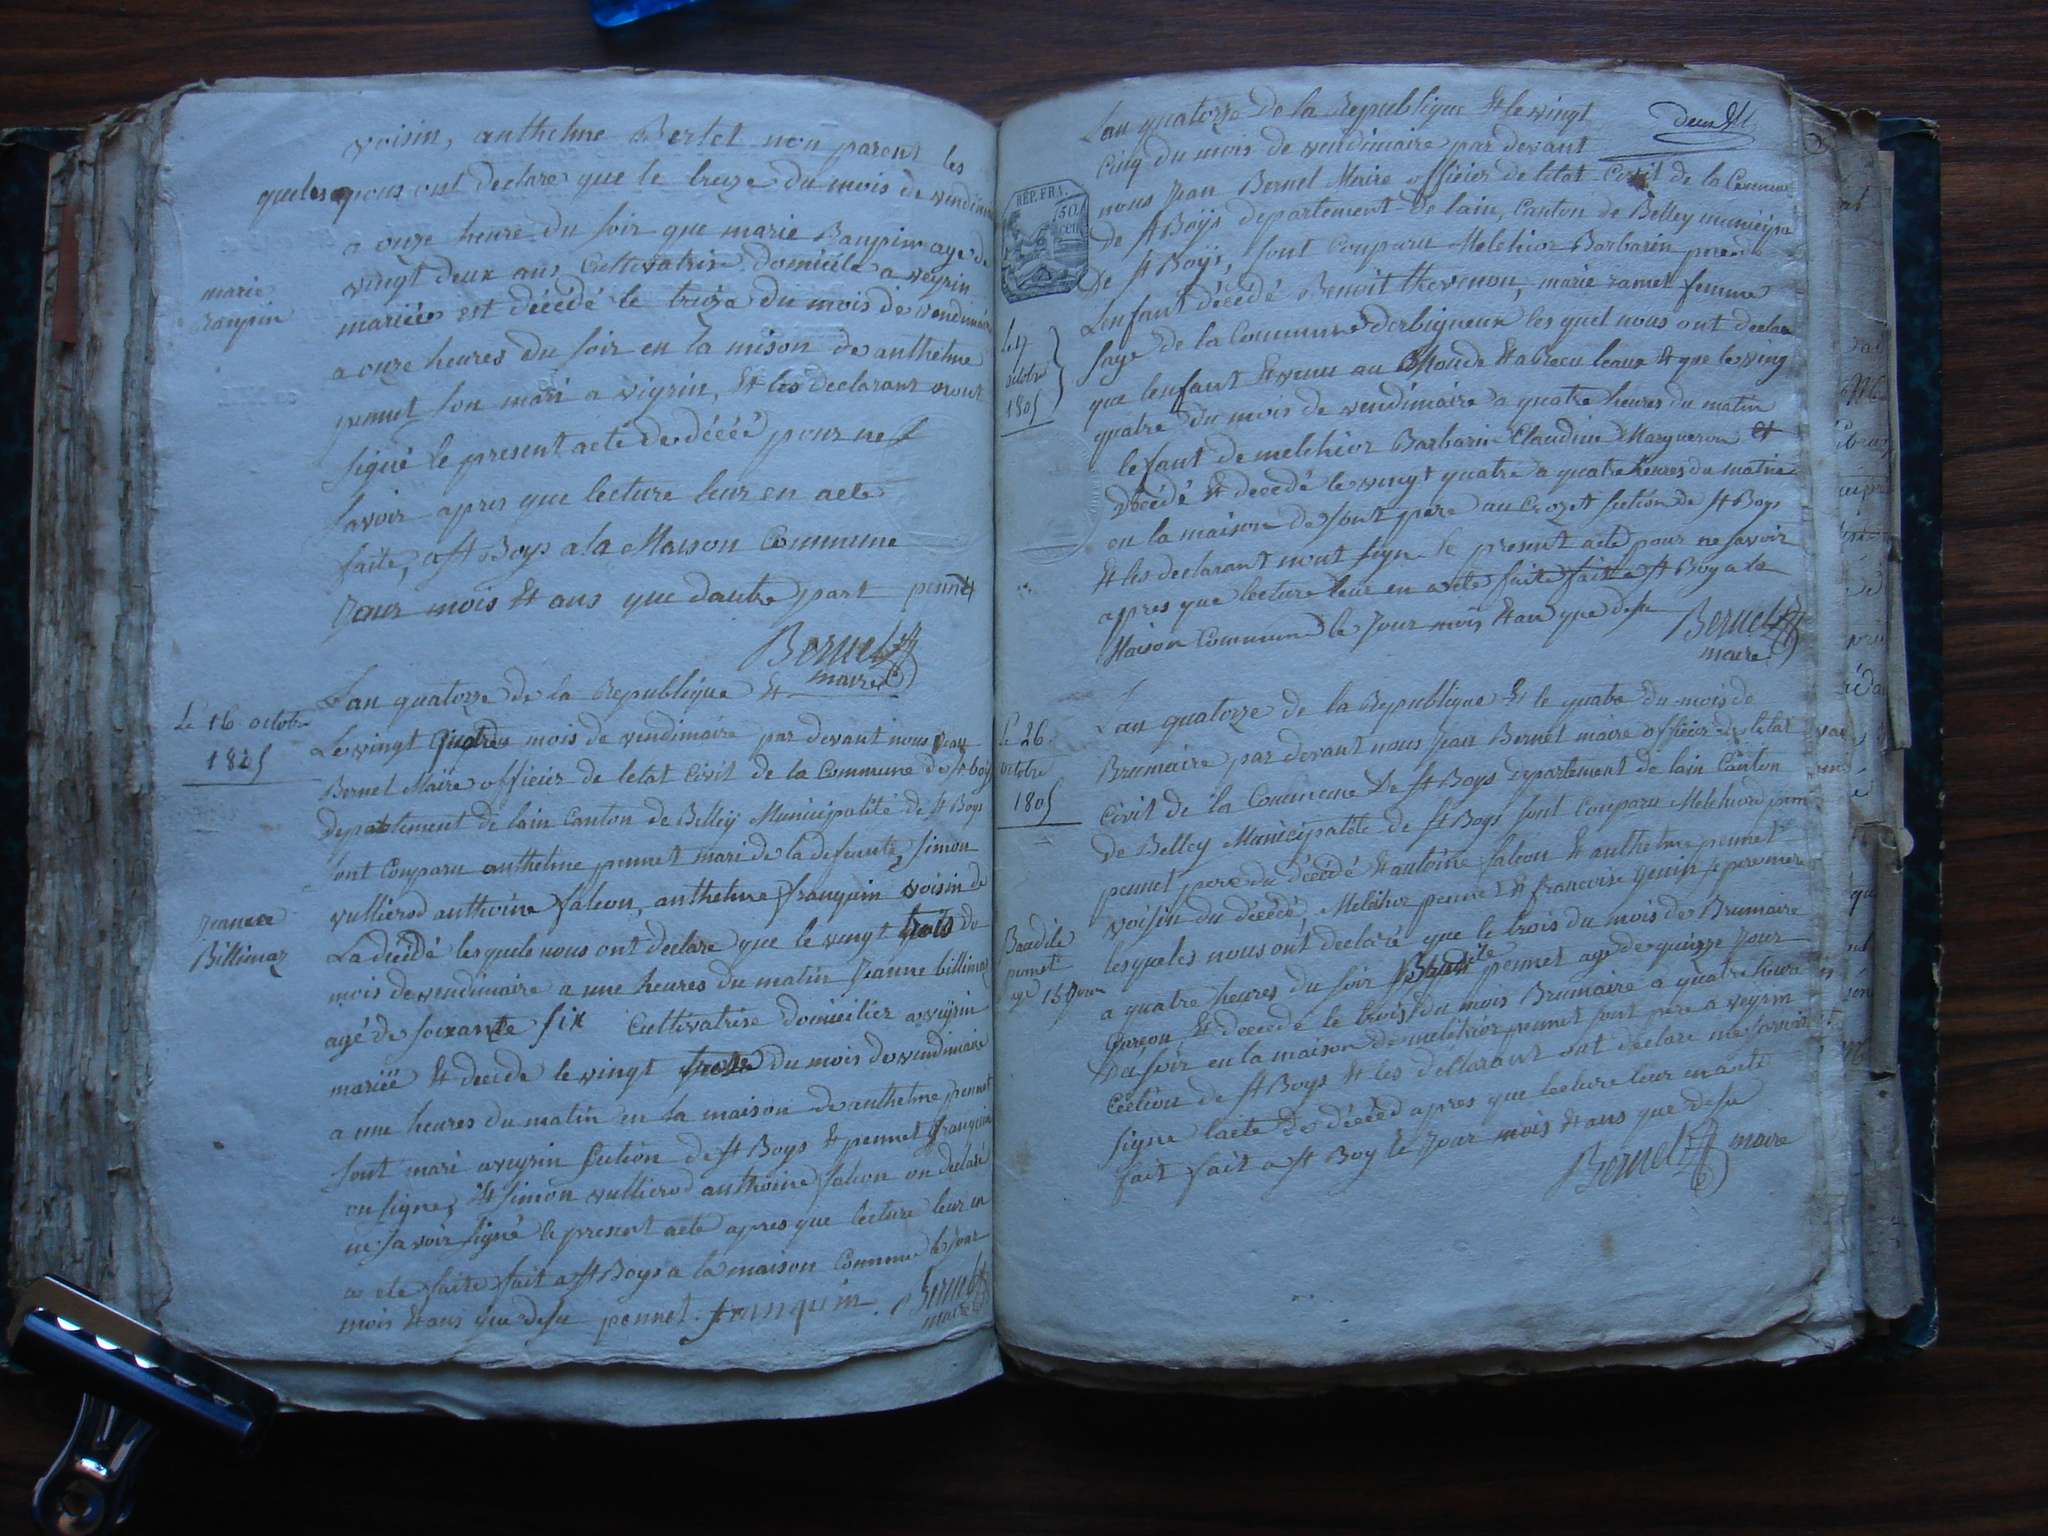 voisin, anthelme Bertet non parent les
queles nous ont declare que le treize du mois de vendim
a onze heure du soir que marie Baupin age de
vingt deux ans Cultivatrise domicile a veyrin
mariée est décédé le treize du mois de vendimaire
a onze heures du soir en la mison de anthelme
pennet son mari a vigrin, et les declarant nont
signé le present acte de déééé pour ne
savoir apres que lecture leur en aete
faite, a st Boys a la Maison Commune
Jour mois et ans que dautre part pennet
Bernet
maire
marie
Baupin
Le 16 octobre
1805
Lan quatorze de la Republique et
Le vingt quatre du mois de vendimaire par devant nous Jean
Bernet Maire officier de letat Civil de la Commune de st boys
departement de lain Canton de Belley Municipalité de st Boys
sont Comparu anthelme pennet mari de la defunte, simon
vullierod anthoine falcon, anthelme franquin voisin de
La décédé lesquele nous ont declare que le vingt trois du
mois de vendimaire a une heures du matin Jeanne billimaz
agé de soixante six Cultivatrise domicilier a veyrin
mariéé et decede le vingt trois du mois de vendimaire
a une heures du matin en la maison de anthelme pennet
sont mari a veyrin section de st Boys et pennet franquin
on signe, et simon vullierod anthoine falcon on declaré
ne savoir signé le present acte apres que lecture leur en
a ete faite fait a st Boys a la maison Commune le Jour
mois et ans que desu pennet. franquin. Bernet
maire
Jeanne
Billimaz
Lan quatorze de la Republique et le vingt
deux
cinq du mois de vendimaire par devant
nous Jean Bernet Maire officier de letat Civil de la Commune
de st Boÿs departement de lain, Canton de Belley
De st Boÿs, sont Comparu Melchior Barbarin
Lenfant décédé Benoit thevenon, marie ramel femme
sage de la Commune les quel nous ont declare
que lenfant et venu au Monde et a Recu leaux et que le ving
quatre du mois de vendimaire a quatre heures du matin
lefant de melchior Barbarin Claudine Margueron et
Décédé et decedé le vingt quatre a quatre heures du matin
en la maison de sont pere au Crozet section de st Boys
et les declarant nont signe le present acte pour ne savoir
apres que lecture leur en a ete faite faite a st Boy a la
Maison Commune le Jour mois et an que desu Bernet
maire
REP. FRA.
50
cen
octobre
1805
Le 26
octobre
1805
Lan quatorze de la Republique et le quatre du mois de
Brumaire par devant nous Jean Bernet maire officier de letat
Civil de la Commune De st Boys departement de lain Canton
de Belley Municipalite de st Boys sont Comparu Melchiord
pennet pere du décédé et antoine falcon et anthelme pennet
voisin du décédé, Melchior pennet et francoise genin pere mere
lesqueles nous ont declaré que le trois du mois de Brumaire
a quatre heures du soir Baudile pennet agé de quinze Jour
Garcon, et decedé le trois du mois Brumaire a quatre heure
Du soir en la maison de melchior pennet sont pere a veyrin
Cection de st Boys et les declarant ont declare ne savoir
signe lacte de déééd apres que lecture leur en a ete
fait fait a st Boy le Jour mois et ans que desu
Bernet maire
Baudile
pennet
agé 15 Jour